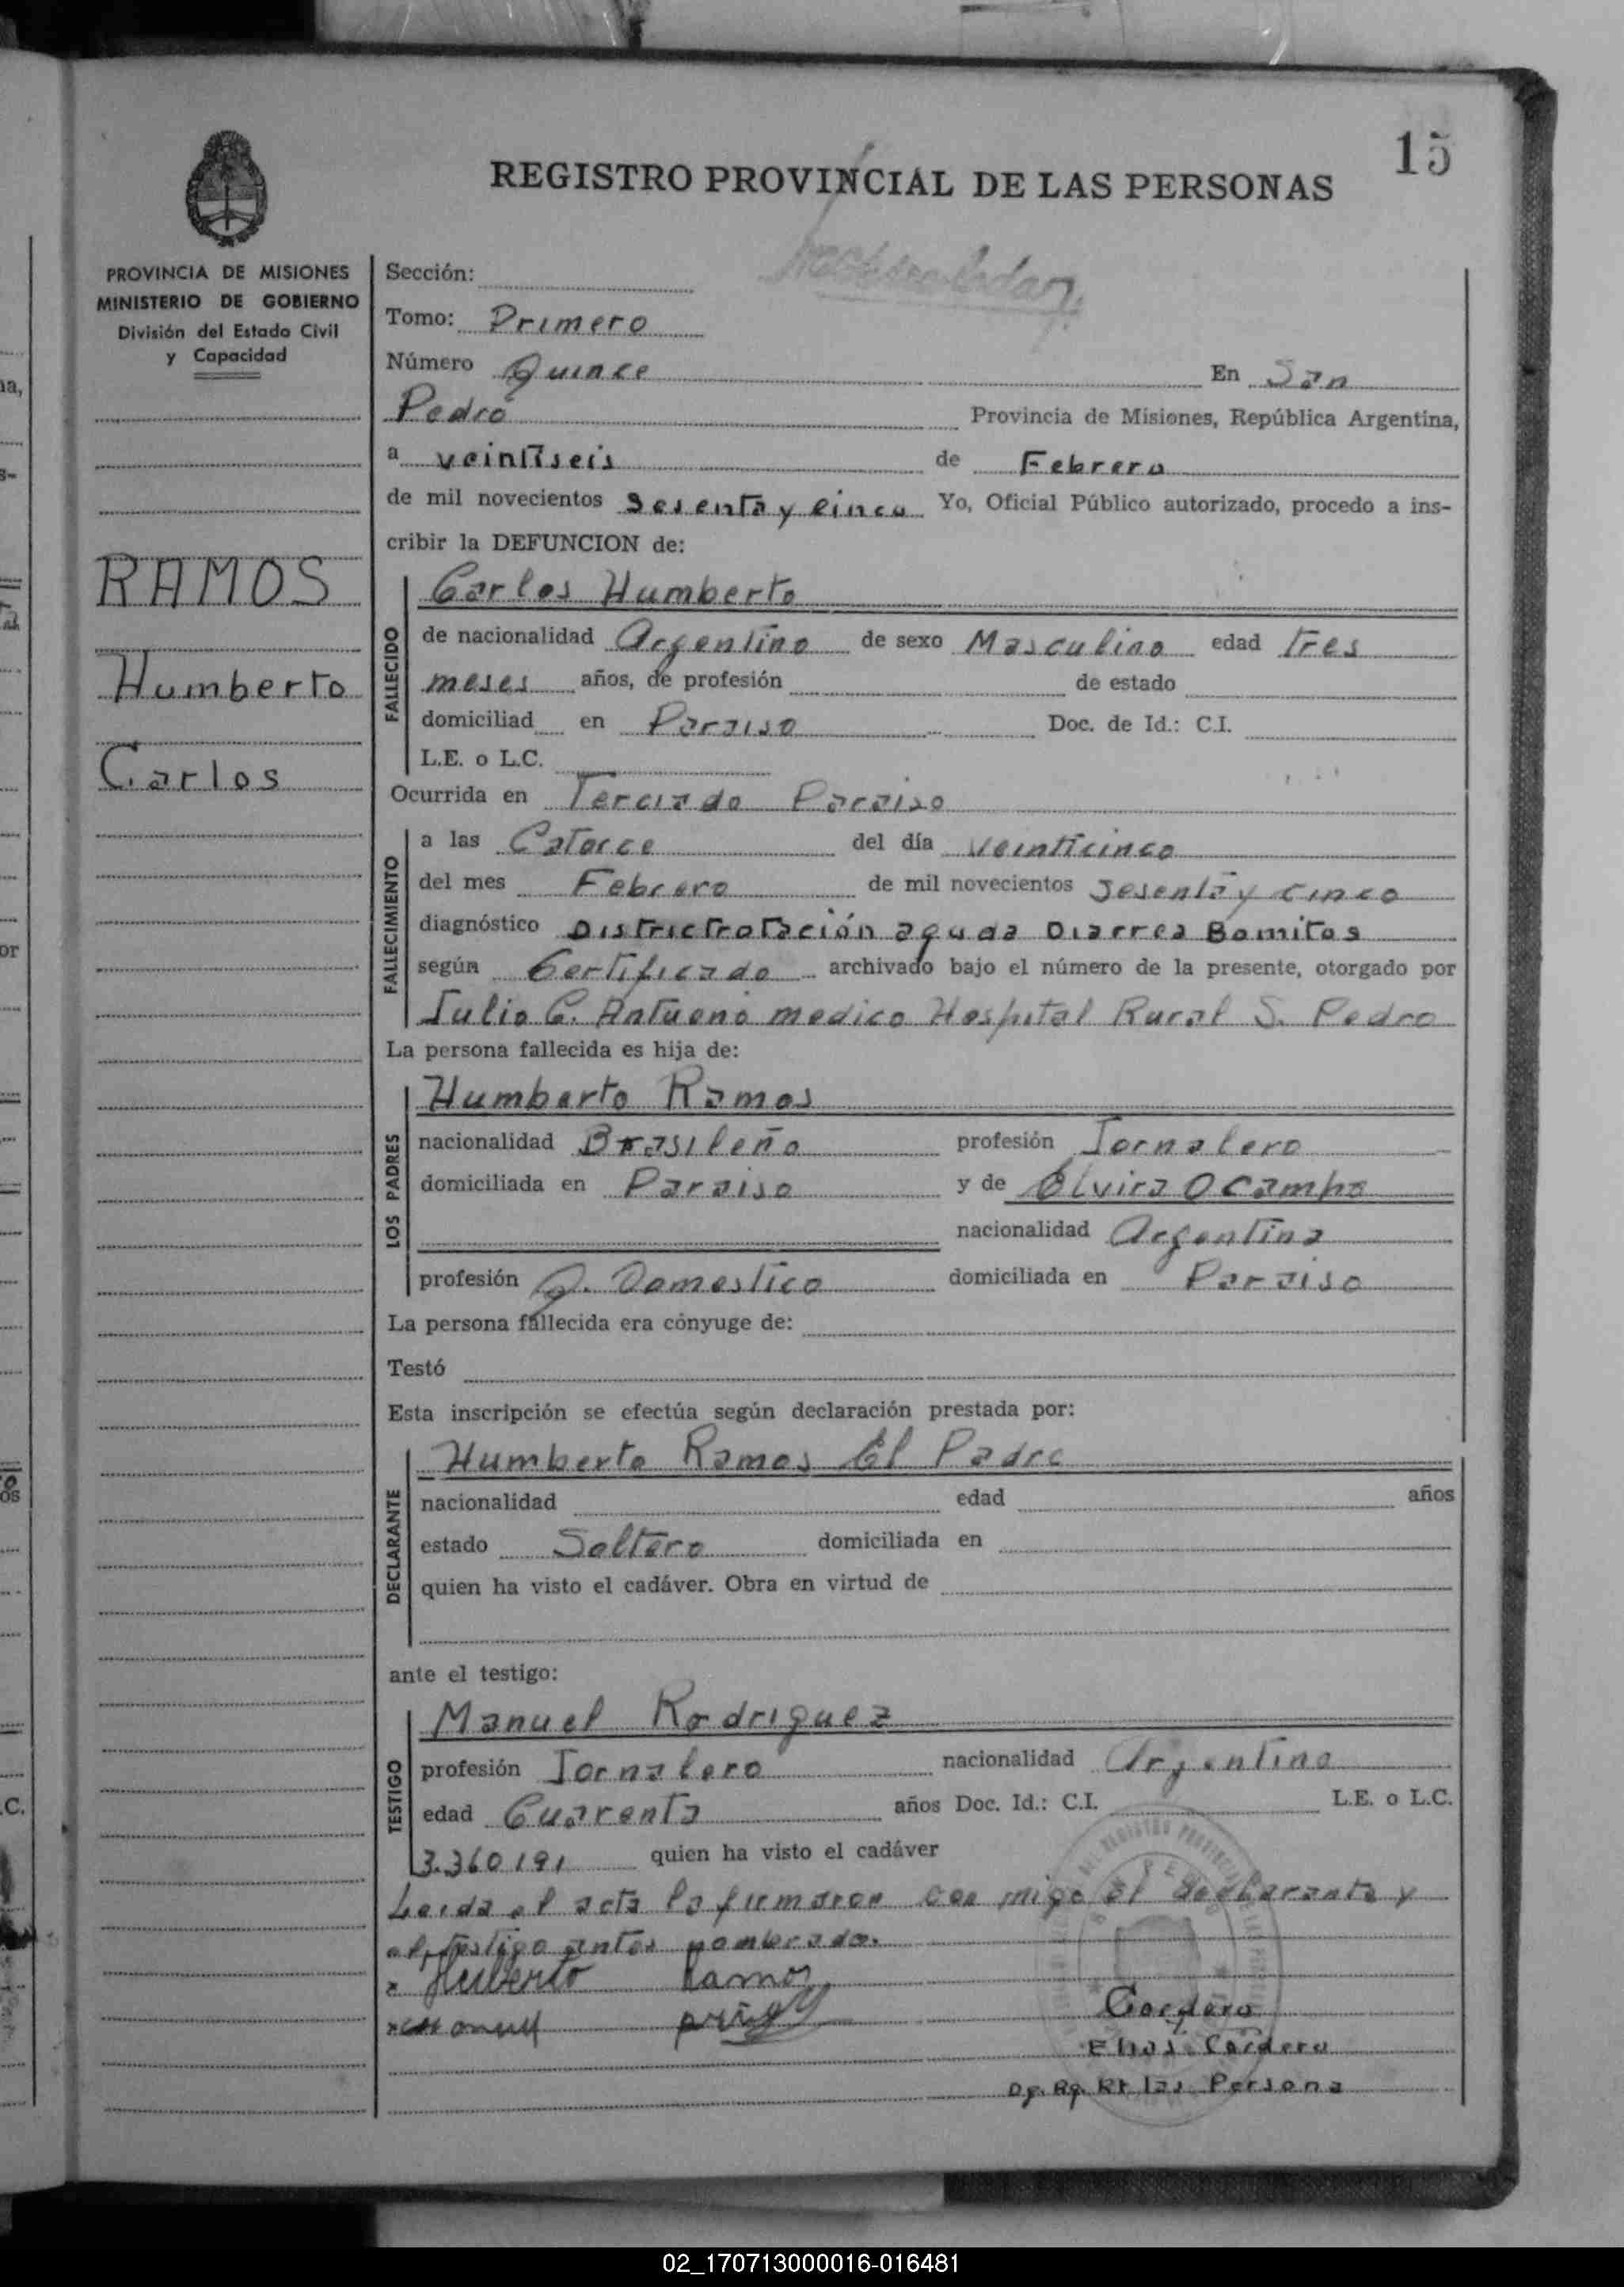 15
REGISTRO PROVINCIAL DE LAS PERSONAS
PROVINCIA DE MISIONES
MINISTERIO DE GOBIERNO
División del Estado Civil
y Capacidad
RAMOS
Humberto
Carlos
Sección:
Tomo: Primero
Número Quince En San
Pedro Provincia de Misiones, República Argentina,
a veintiseis de Febrero
de mil novecientos Sesenta y cinco Yo, Oficial Público autorizado, procedo a ins-
cribir la DEFUNCION de:
FALLECIDO
Carlos Humberto
de nacionalidad Argentino de sexo Masculino edad tres
meses años, de profesión de estado
domiciliad en Paraiso Doc. de Id.: C.I.
L.E. o L.C.
Ocurrida en Terciado Paraiso
FALLECIMIENTO
a las Catorce del día veinticinco
del mes Febrero de mil novecientos Sesenta y cinco
diagnóstico Districtrotación aguda Diarrea Bomitos
según Certificado archivado bajo el número de la presente, otorgado por
Julio C. medico Hospital Rural S. Pedro
La persona fallecida es hija de:
LOS PADRES
Humberto Ramos
nacionalidad Brasileño profesión Jornalero
domiciliada en Paraiso y de Elvira Ocampo
nacionalidad Argentina
profesión Q. Domestico domiciliada en Paraiso
La persona fallecida era cónyuge de:
Testó
Esta inscripción se efectúa según declaración prestada por:
DECLARANTE
Humberto Ramos El Padre
nacionalidad edad años
estado Soltero domiciliada en
quien ha visto el cadáver. Obra en virtud de
ante el testigo:
TESTIGO
Manuel Rodriguez
profesión Jornalero nacionalidad Argentino
edad Cuarenta años Doc. Id.: C.I. L.E. o L.C.
3.360191 quien ha visto el cadáver
Leida el acta la firmaron con migo el declarante y
el testigo antes nombrado.
x Huberto Ramos
Cordero
Elias Cordero
las Persona
02_170713000016-016481